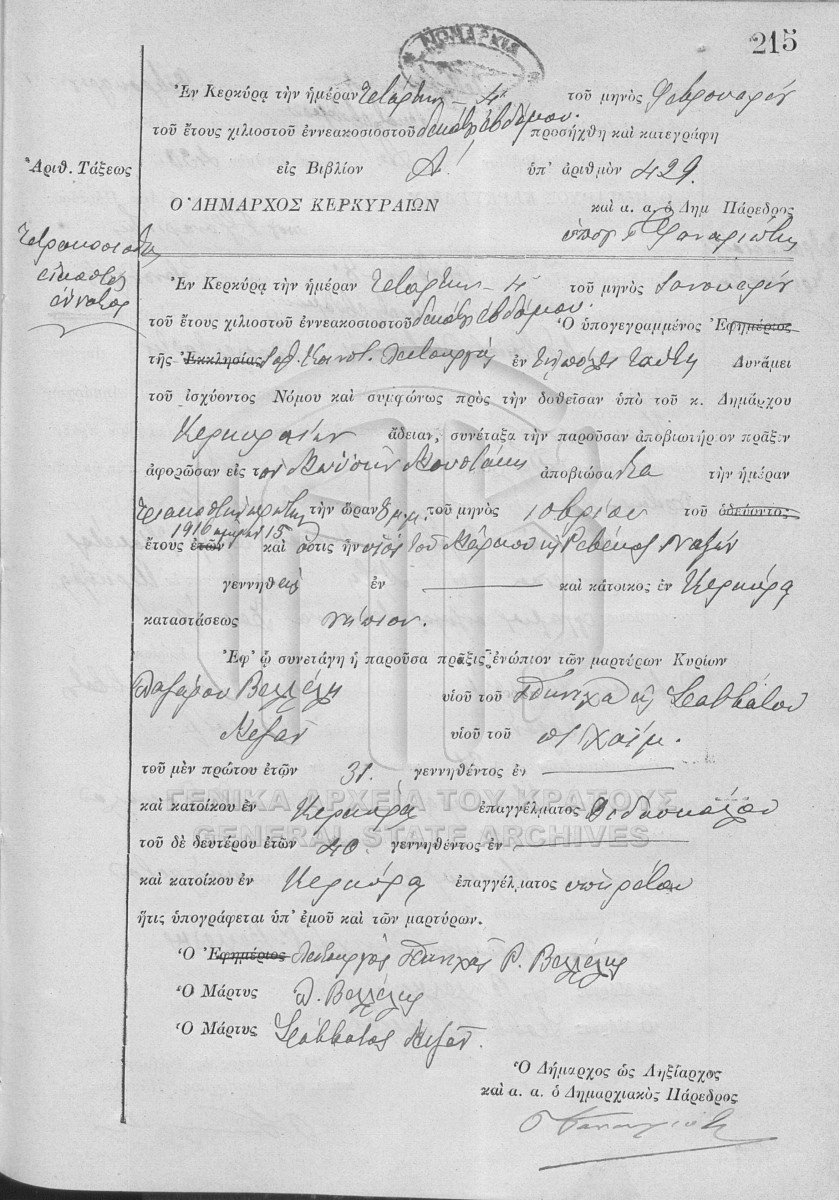 215
ΝΟΜΑΡΧΙΑ
Ἐν Κερκύρᾳ τὴν ἡμέραν Τετάρτην - 4 τοῦ μηνὸς Φεβρουαρίου
τοῦ ἔτους χιλιοστοῦ ἐννεακοσιοστοῦ δεκάτου ἑβδόμου προσήχθη καὶ κατεγράφη
Ἀριθ. Τάξεως εἰς Βιβλίον Α! ὑπ' ἀριθμὸν 429.
Ὁ ΔΗΜΑΡΧΟΣ ΚΕΡΚΥΡΑΙΩΝ καὶ α. α. ὁ Δημ Πάρεδρος
ὑπογ
Τετρακοσιοστὸς
εἰκοστὸς
ἔννατος
Ἐν Κερκύρᾳ τὴν ἡμέραν Τετάρτην - 4 τοῦ μηνὸς Ἰανουαρίου
τοῦ ἔτους χιλιοστοῦ ἐννεακοσιοστοῦ δεκάτου ἑβδόμου. Ὁ ὑπογεγραμμένος Ἐφημέριος
τῆς Ἐκκλησίας Ἰσρ. Κοινοτ. Λειτουργὸς ἐν τῇ πόλει ταύτῃ Δυνάμει
τοῦ ἰσχύοντος Νόμου καὶ συμφώνως πρὸς τὴν δοθεῖσαν ὑπὸ τοῦ κ. Δημάρχου
Κερκυραίων ἄδειαν, συνέταξα τὴν παροῦσαν ἀποβιωτήριον πρᾶξιν
ἀφορῶσαν εἰς τὸν Μουστάκη ἀποβιώσαντα τὴν ἡμέραν
τριακοστὴν πρώτην τὴν ὥραν 8 μ.μ. τοῦ μηνὸς 10βρίου τοῦ ὁδεύοντος
1916
ἔτους ἐτῶν καὶ ὅστις ἦν υἱὸς τοῦ Μάρκου καὶ Ρεβέκας
γεννηθεὶς ἐν καὶ κάτοικος ἐν Κερκύρᾳ
καταστάσεως νήπιον.
Ἐφ' ᾧ συνετάγη ἡ παροῦσα πρᾶξις ἐνώπιον τῶν μαρτύρων Κυρίων
Λαζάρου Βελλέλη υἱοῦ τοῦ Πινχὰ καὶ Σαββάτου
υἱοῦ τοῦ Χαΐμ.
τοῦ μὲν πρώτου ἐτῶν 31. γεννηθέντος ἐν
καὶ κατοίκου ἐν Κερκύρᾳ ἐπαγγέλματος διδασκάλου
ΓΕΝΙΚΑ ΑΡΧΕΙΑ ΤΟΥ ΚΡΑΤΟΥΣ
GENERAL STATE ARCHIVES
τοῦ δὲ δευτέρου ἐτῶν 40. γεννηθέντος ἐν
καὶ κατοίκου ἐν Κερκύρᾳ ἐπαγγέλματος ὑπηρέτου
ἥτις ὑπογράφεται ὑπ' ἐμοῦ καὶ τῶν μαρτύρων.
Ὁ Ἐφημέριος Λειτουργὸς Πινχὰς Ρ. Βελλέλης
Ὁ Μάρτυς Λ. Βελλέλης
Ὁ Μάρτυς Σάββατος
Ὁ Δήμαρχος ὡς Ληξίαρχος
καὶ α. α. ὁ Δημαρχιακὸς Πάρεδρος